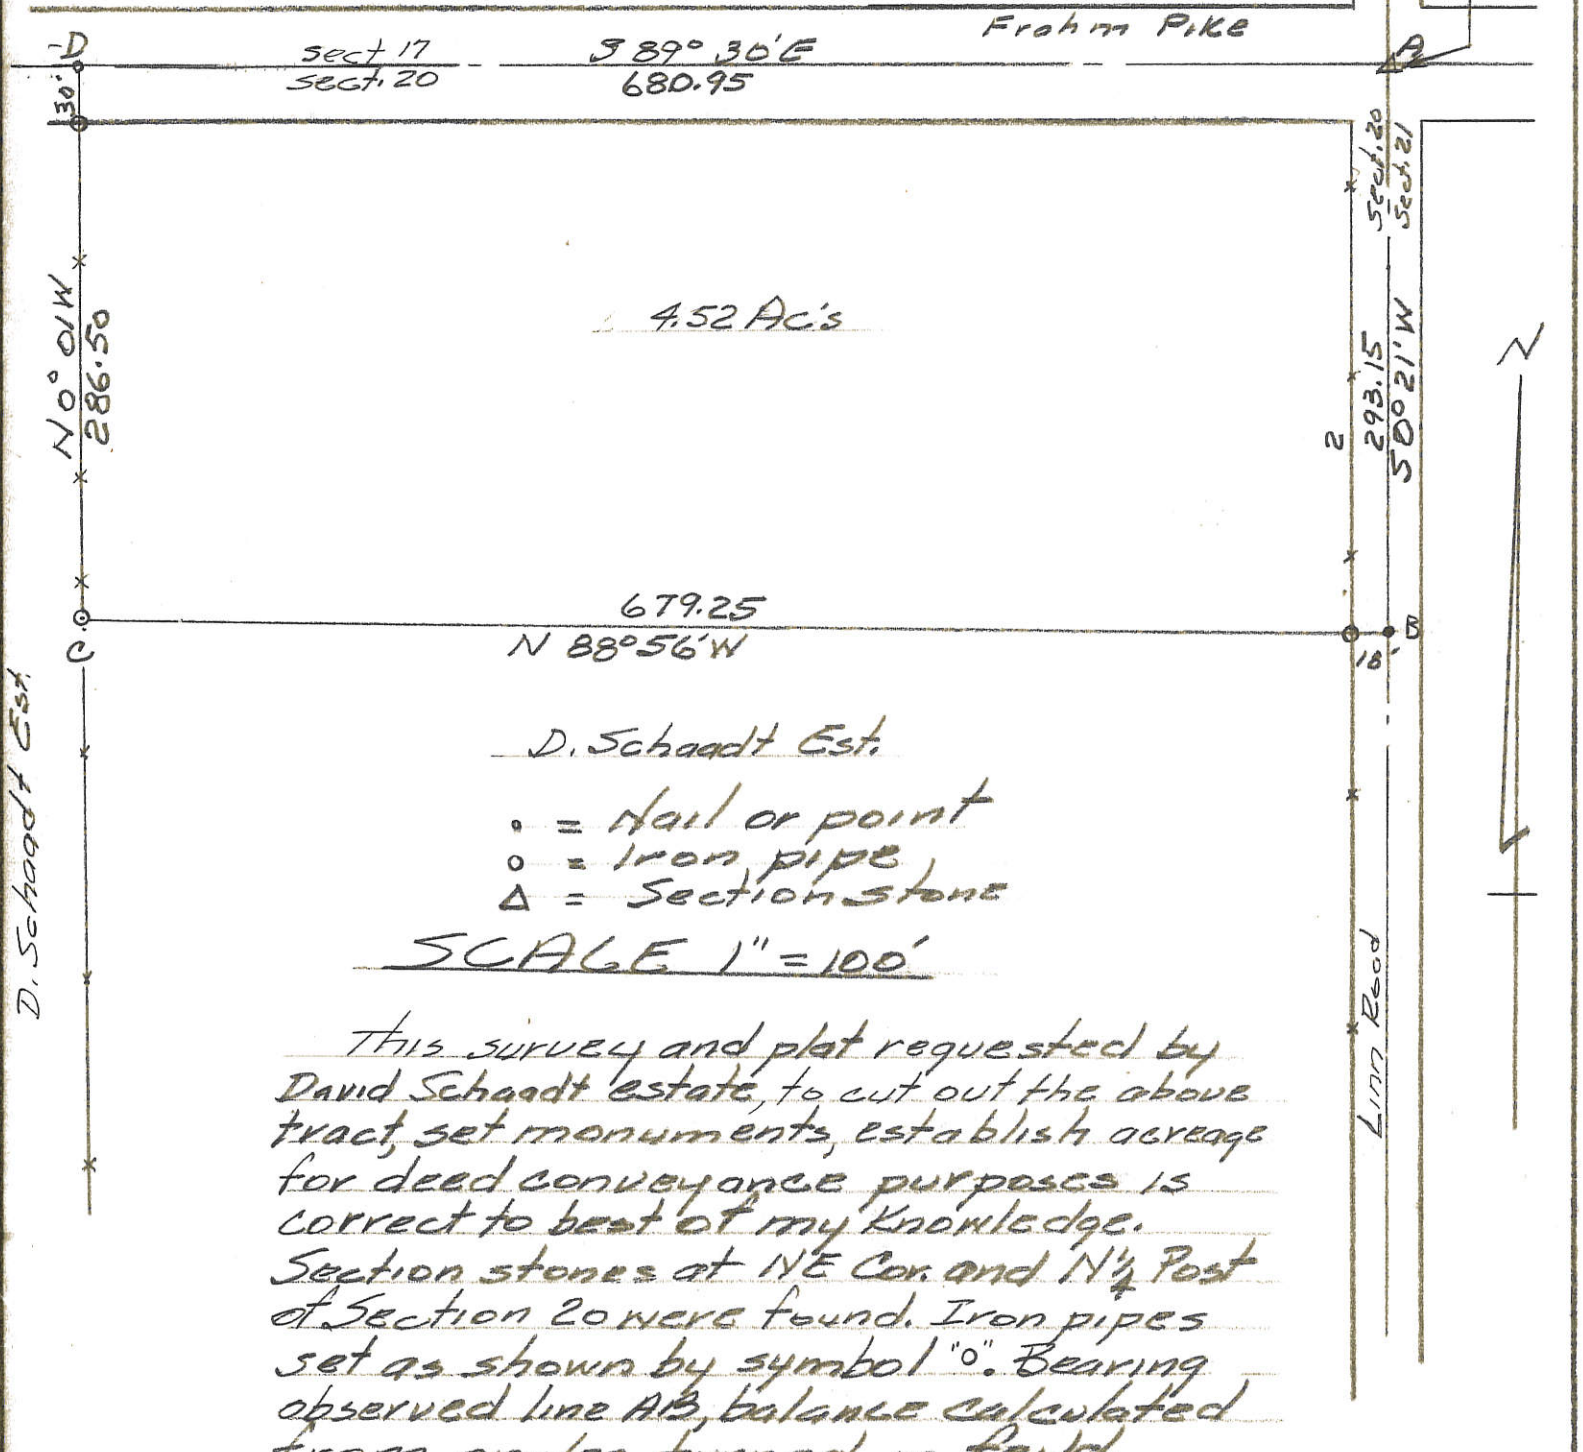 Frahm Pike
D
sect 17
S 89° 30' E
A
sect. 20
680.95
30'
Sect. 20
Sect. 21
4.52 Ac's
N 0° 01' W
286.50
293.15
S 0° 21' W
N
2
679.25
N 88° 56' W
C
B
18'
D. Schaadt Est.
D. Schaadt Est.
• = Nail or point
o = Iron pipe
Δ = Section stone
SCALE 1" = 100'
Linn Road
This survey and plat requested by
David Schaadt estate, to cut out the above
tract, set monuments, establish acreage
for deed conveyance purposes is
correct to best of my Knowledge.
Section stones at NE Cor. and N¼ Post
of Section 20 were found. Iron pipes
set as shown by symbol "o". Bearing
observed line AB, balance calculated